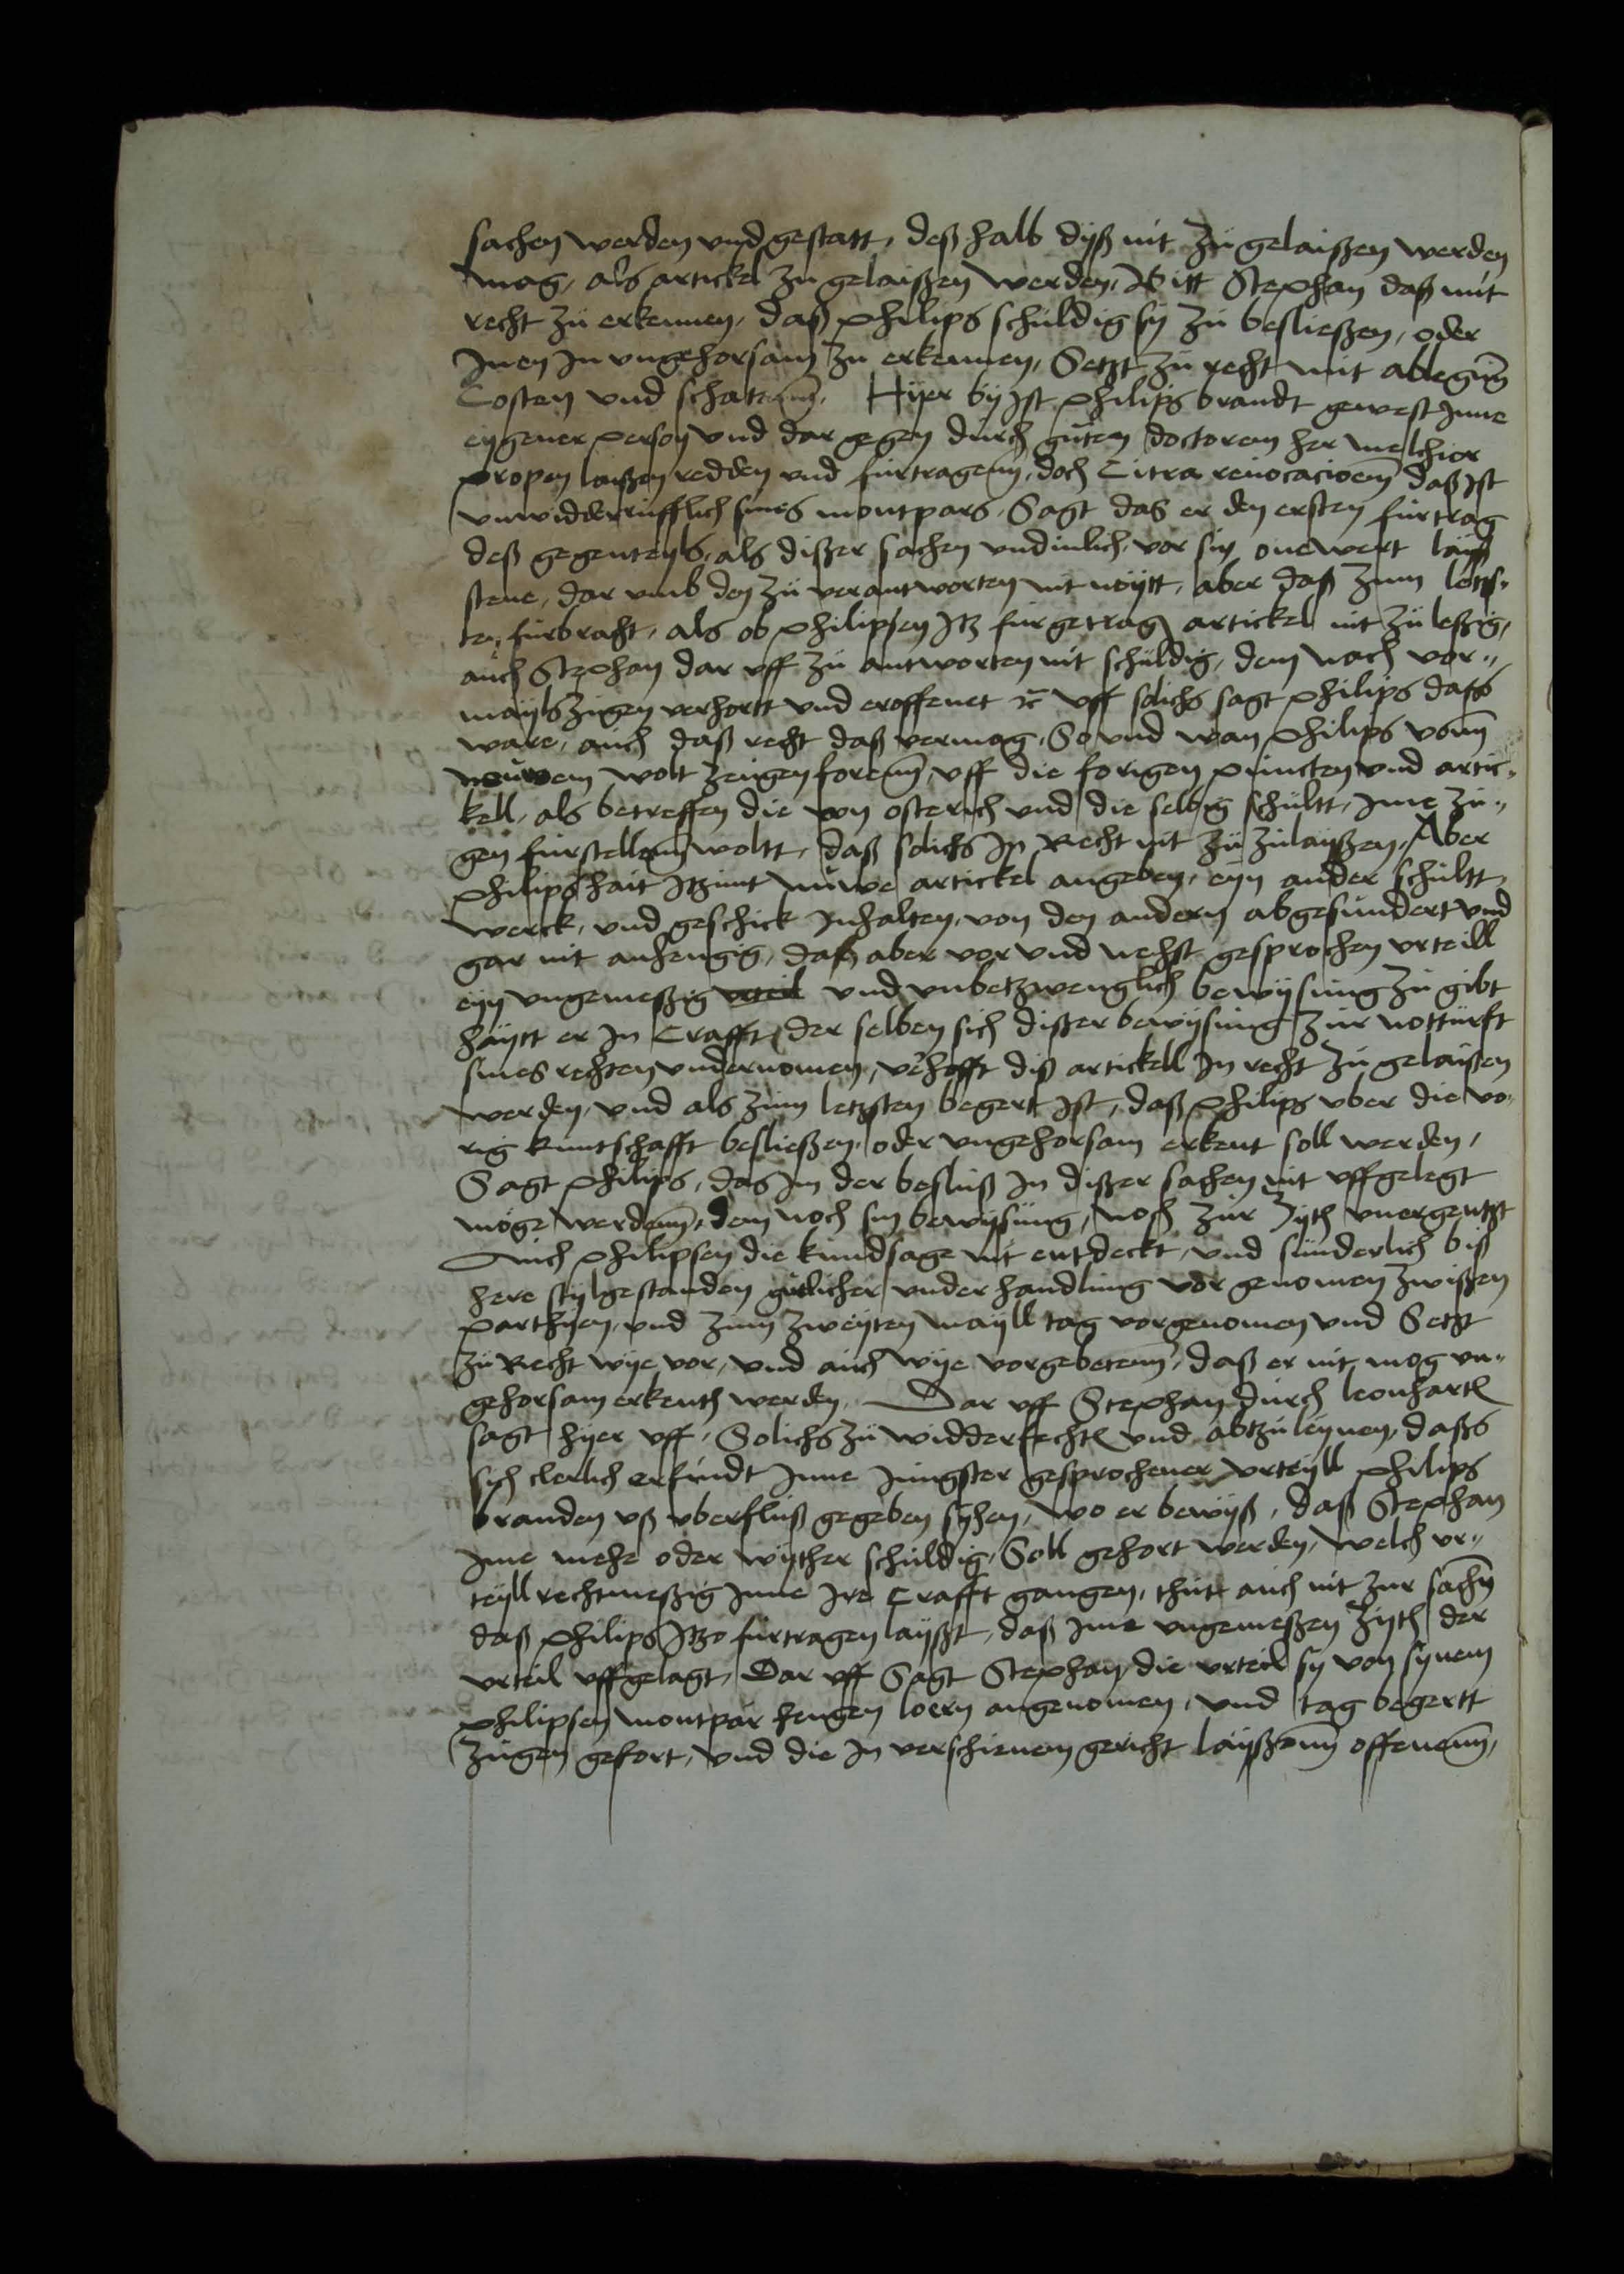 sachen werden vnd gestatt, deßhalb dyß nit zu gelaißen werden
mag, als artickel zu gelaißen werden, Bitt Stephan daß mit
recht zu erkennen, daß philips schuldig sy zu besließen, oder
Inen In vngehorsam zu erkennen, Setzt zu recht mit ablegūg
Costen vnd schatenn̄. Hyer by Ist philips brandt gewest Inne
eygener person vnd dar gegen durch guten doctorem her melchior
propen laißen redden vnd furtragenn̄, doch Citra reuocacioem̄ daß Ist
vnwidderrufflich sines montpars, Sagt das er den ersten furtrag
deß gegenteyls, als dißer sachen vndinlich, vor sin onewert laiß
stene, dar vmb den zu verantworten nit noytt, aber daß zum letzs-
ten furbracht, als ob philipsen Itz furgetragen artickel nit zu leßig,
auch Stephan dar vff zu antworten nit schuldig, dem nach vor-
mayls zigen verhortt vnd eroffenet ꝛc̄ vff solichs sagt philips daß
ware, auch daß recht daß vermog, So vnd wan philips vonn̄
neuwem wolt zeugen forenn̄, vff die forigen puncten vnd artic-
kell, als betreffen die von osterich vnd die selbig schultt, Inne zu-
gen furstellenn̄ woltt, daß solichs In Recht nit zu zulaißen, Aber
philips hait Itzunt nuwe artickel angeben, eyn ander schultt
werck, vnd geschick Inhalten, von den andern abgesundert vnd
gar nit anhengig, daß aber vor vnd nehst gesprochen vrteill
eyn vngemeßig vrteil vnd vnbetzwenglich bewysung zu gibt
haytt er In Crafft der selben sich dißer bewysung zur notturft
sines rechten vndernomen, v'hofft diß artickell In recht zu gelaißen
werden, vnd als zum letzsten begert Ist, daß philips vber die vo-
rig kuntschafft besließen, oder vngehorsam erkent soll werden,
Sagt philips, das Im der besluß In dißer sachen nit vffgelegt
moge werdenn̄, dem noch sin bewysung, noch zur zyth vnergentzt
Auch philipsen die kundsage nit entdeckt, vnd sunderlich biß
here stylgestanden gutlicher vnder handlung vor genomen zwißen
parthyen, vnd zum zweyten mayll tag vorgenomen vnd Setzt
zu Recht wye vor, vnd auch wye vorgebetenn̄, daß er nit mog vn-
gehorsam erkenth werden. Dar vff Stephan durch leonhart
sagt hyer vff, Solichs zu widderfechten vnd abtzuleynen, daß
sich clerlich erfindt Inne Jungster gesprochener vrteyll philips
branden vß vberfluß gegeben syhen, wo er bewyß, daß Stephan
Ime mehe oder wyther schuldig, Soll gehort werden, welch vr-
teyll rechtmeßig Inne Ire Crafft gangen, thutt auch nit zur sachn̄
daß philips Itzo furtragen layßt, daß Ime vngemeßen zyth der
vrteil vffgelagt, Dar vff Sagt Stephan, die vrteil sy von synem
philipsen montpar hengen loern angenomen, vnd tag begertt
zugen gefort, vnd die In verschienem gericht layßenn̄ offenenn̄,